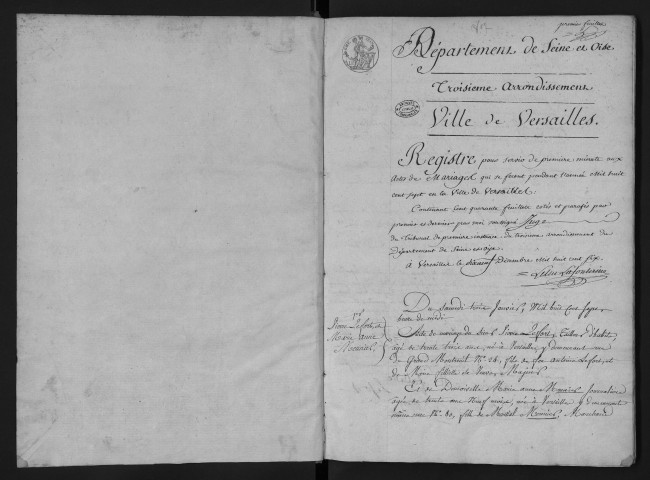 premier feuillet
Département de Seine et Oise
Troisieme Arrondissement
Ville de Versailles.
Registre pour servir de premiere minute aux
Actes de Mariages qui se feront pendant l'année mil huit
cent sept en la Ville de Versailles.
Contenant cent quarante feuillets cotés et paraphés par
premier et dernier par moi soussigné Juge
du Tribunal de premiere instance du troisieme arrondissement du
Département de Seine et Oise
à Versailles le Decembre mil huit cent six.
1er
Pierre Lefort, et
Marie anne
Monnier
Du Samedi trois Janvier, Mil huit Cent Sept
heure de midi
Acte de mariage du Sieur Pierre Lefort, Tailleur d'habits
agé de trente trois ans, né à Versailles, y demeurant rue
du Grand Montreuil No. 26, fils de feu Antoine Lefort, et
de Marie
Et de Demoiselle Marie anne Monnier,
agée de trente ans neuf mois, née à Versailles y demeurant
No. 80, fille de Monnier, Marchand